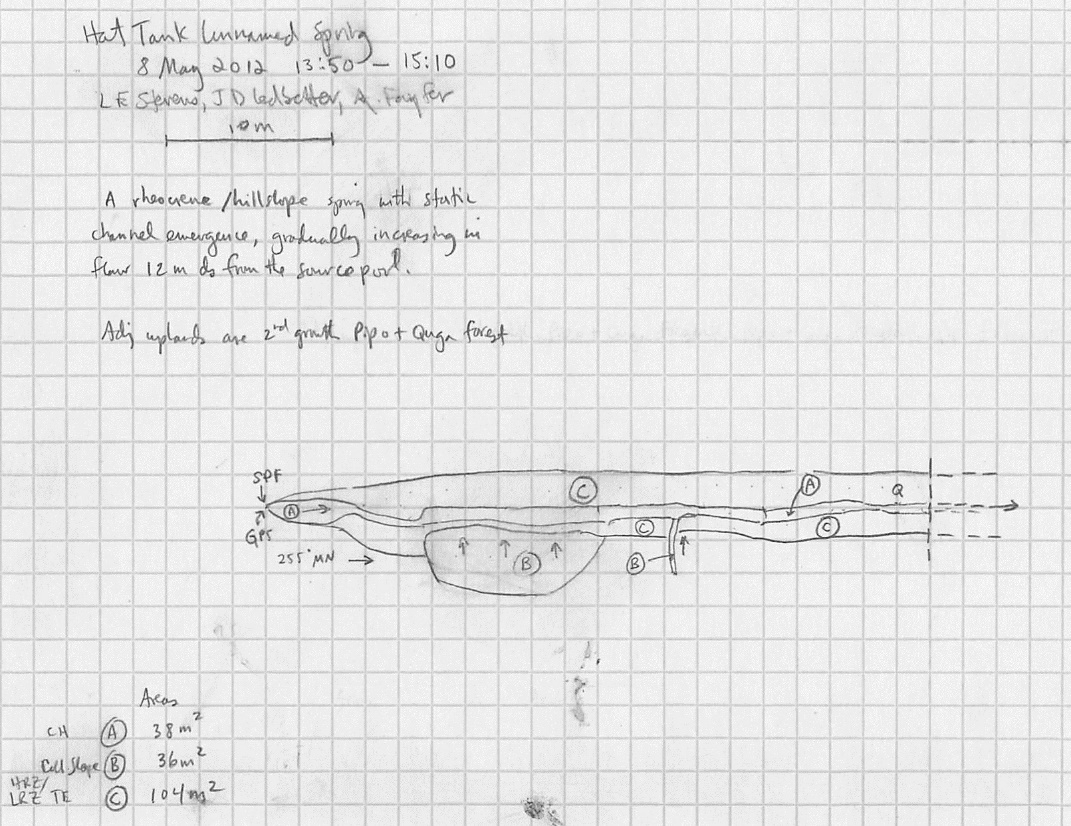 Hat Tank Unnamed Spring
8 May 2012 13:50 – 15:10
LE Stevens, JD Ledbetter, A.
10m
A rheocrene/hillslope spring with static
channel emergence, gradually increasing in
flow 12 m ds from the source
Adj uplands are 2nd growth Pipo + Quga forest
SPF
C
A
Q
A
GPS
C
C
255° MN
B
B
Areas
CH A 38 m²
Coll Slope B 36 m²
HRZ/
LRZ TE C 104 m²